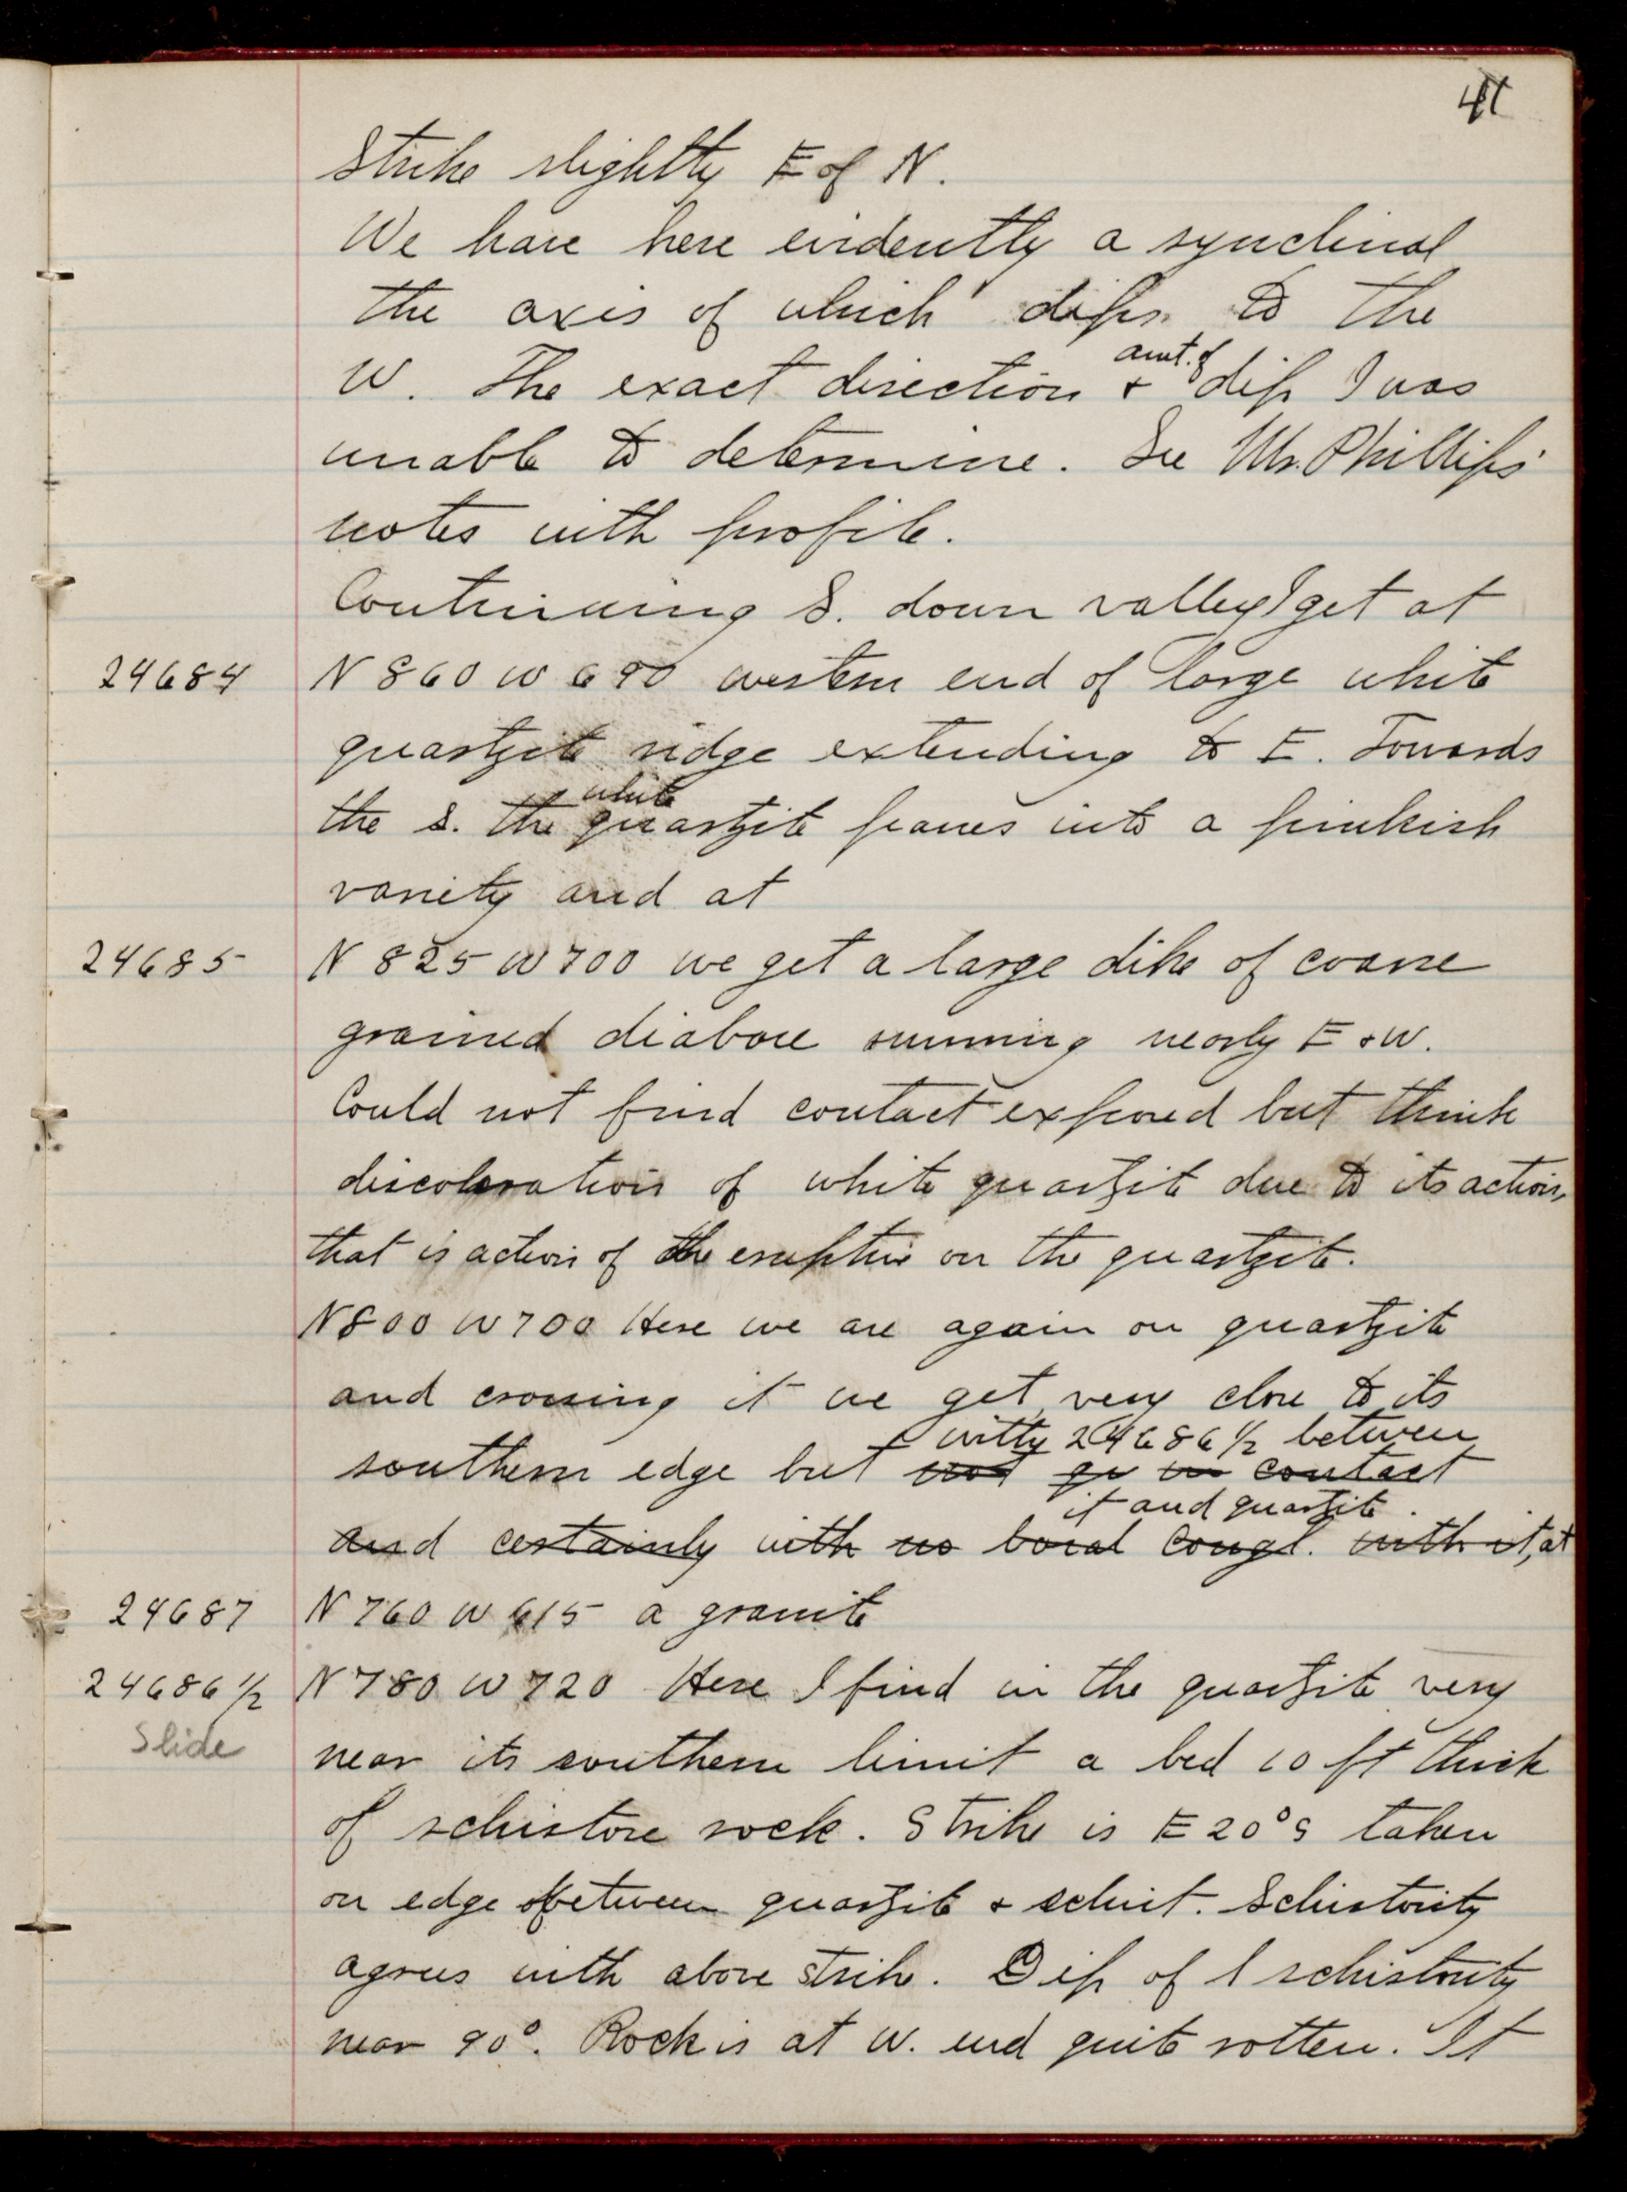 41
Strike slightly E of N.
We have here evidently a synclinal
the axis of which dips to the
W. The exact direction & amt. of dip I was
unable to determine. See Mr. Phillips'
notes with profile.
Continuing S. down valley I get at
24684 N 860 W 690 western end of large white
quartzite ridge extending to E. Towards
the S. the white quartzite passes into a pinkish
variety and at
24685 N 825 W 700 we get a large dike of coarse
grained diabase running nearly E & W.
Could not find contact exposed but think
discoloration of white quartzite due to its action,
that is action of the eruptive on the quartzite.
N 800 W 700 Here we are again on quartzite
and crossing it we get very close to its
southern edge but not in contact
with 24686 1/2 between
it and quartzite.
and certainly with no basal congl. with it, at
24687 N 760 W 615 a granite
24686 1/2 N 780 W 720 Here I find in the quartzite very
Slide
near its southern limit a bed 10 ft thick
of schistose rock. Strike is E 20° S taken
on edge between quartzite & schist. Schistosity
agrees with above strike. Dip of schistosity
near 90°. Rock is at W. end quite rotten. It